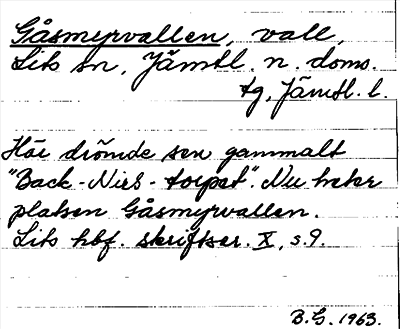 Gåsmyrvallen, vall,
Lits sn, Jämtl. n. doms.
tg, Jämtl. l.
Här drömde sen gammalt
"Back-Nirs-torpet". Nu heter
platsen Gåsmyrvallen.
Lits hbf. skriftser. X, s. 9.
B.G. 1963.